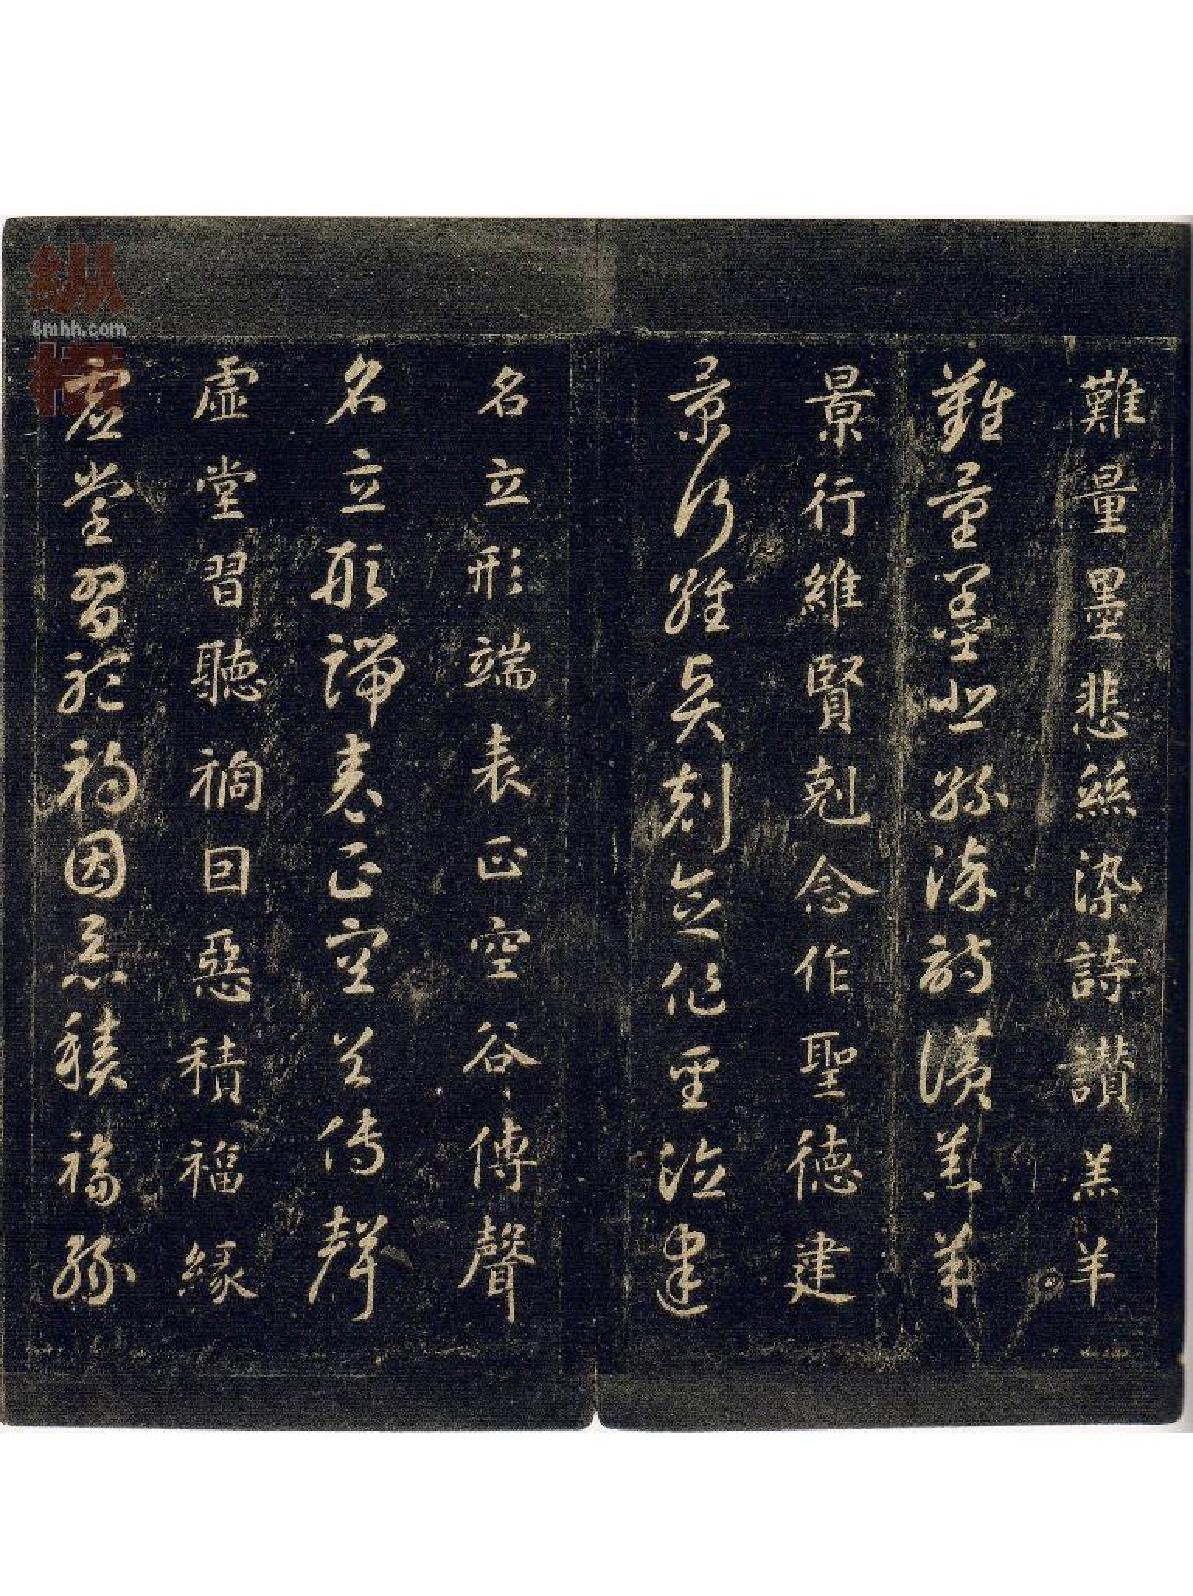 難量墨悲絲染詩讃羔羊
難量墨悲絲染詩讃羔羊
景行維賢剋念作聖徳建
景行維賢剋念作聖徳建
名立形端表正空谷傳聲
名立形端表正空谷傳聲
虛堂習聽禍因惡積福緣
虛堂習聽禍因惡積福緣
纵横
8mhh.com